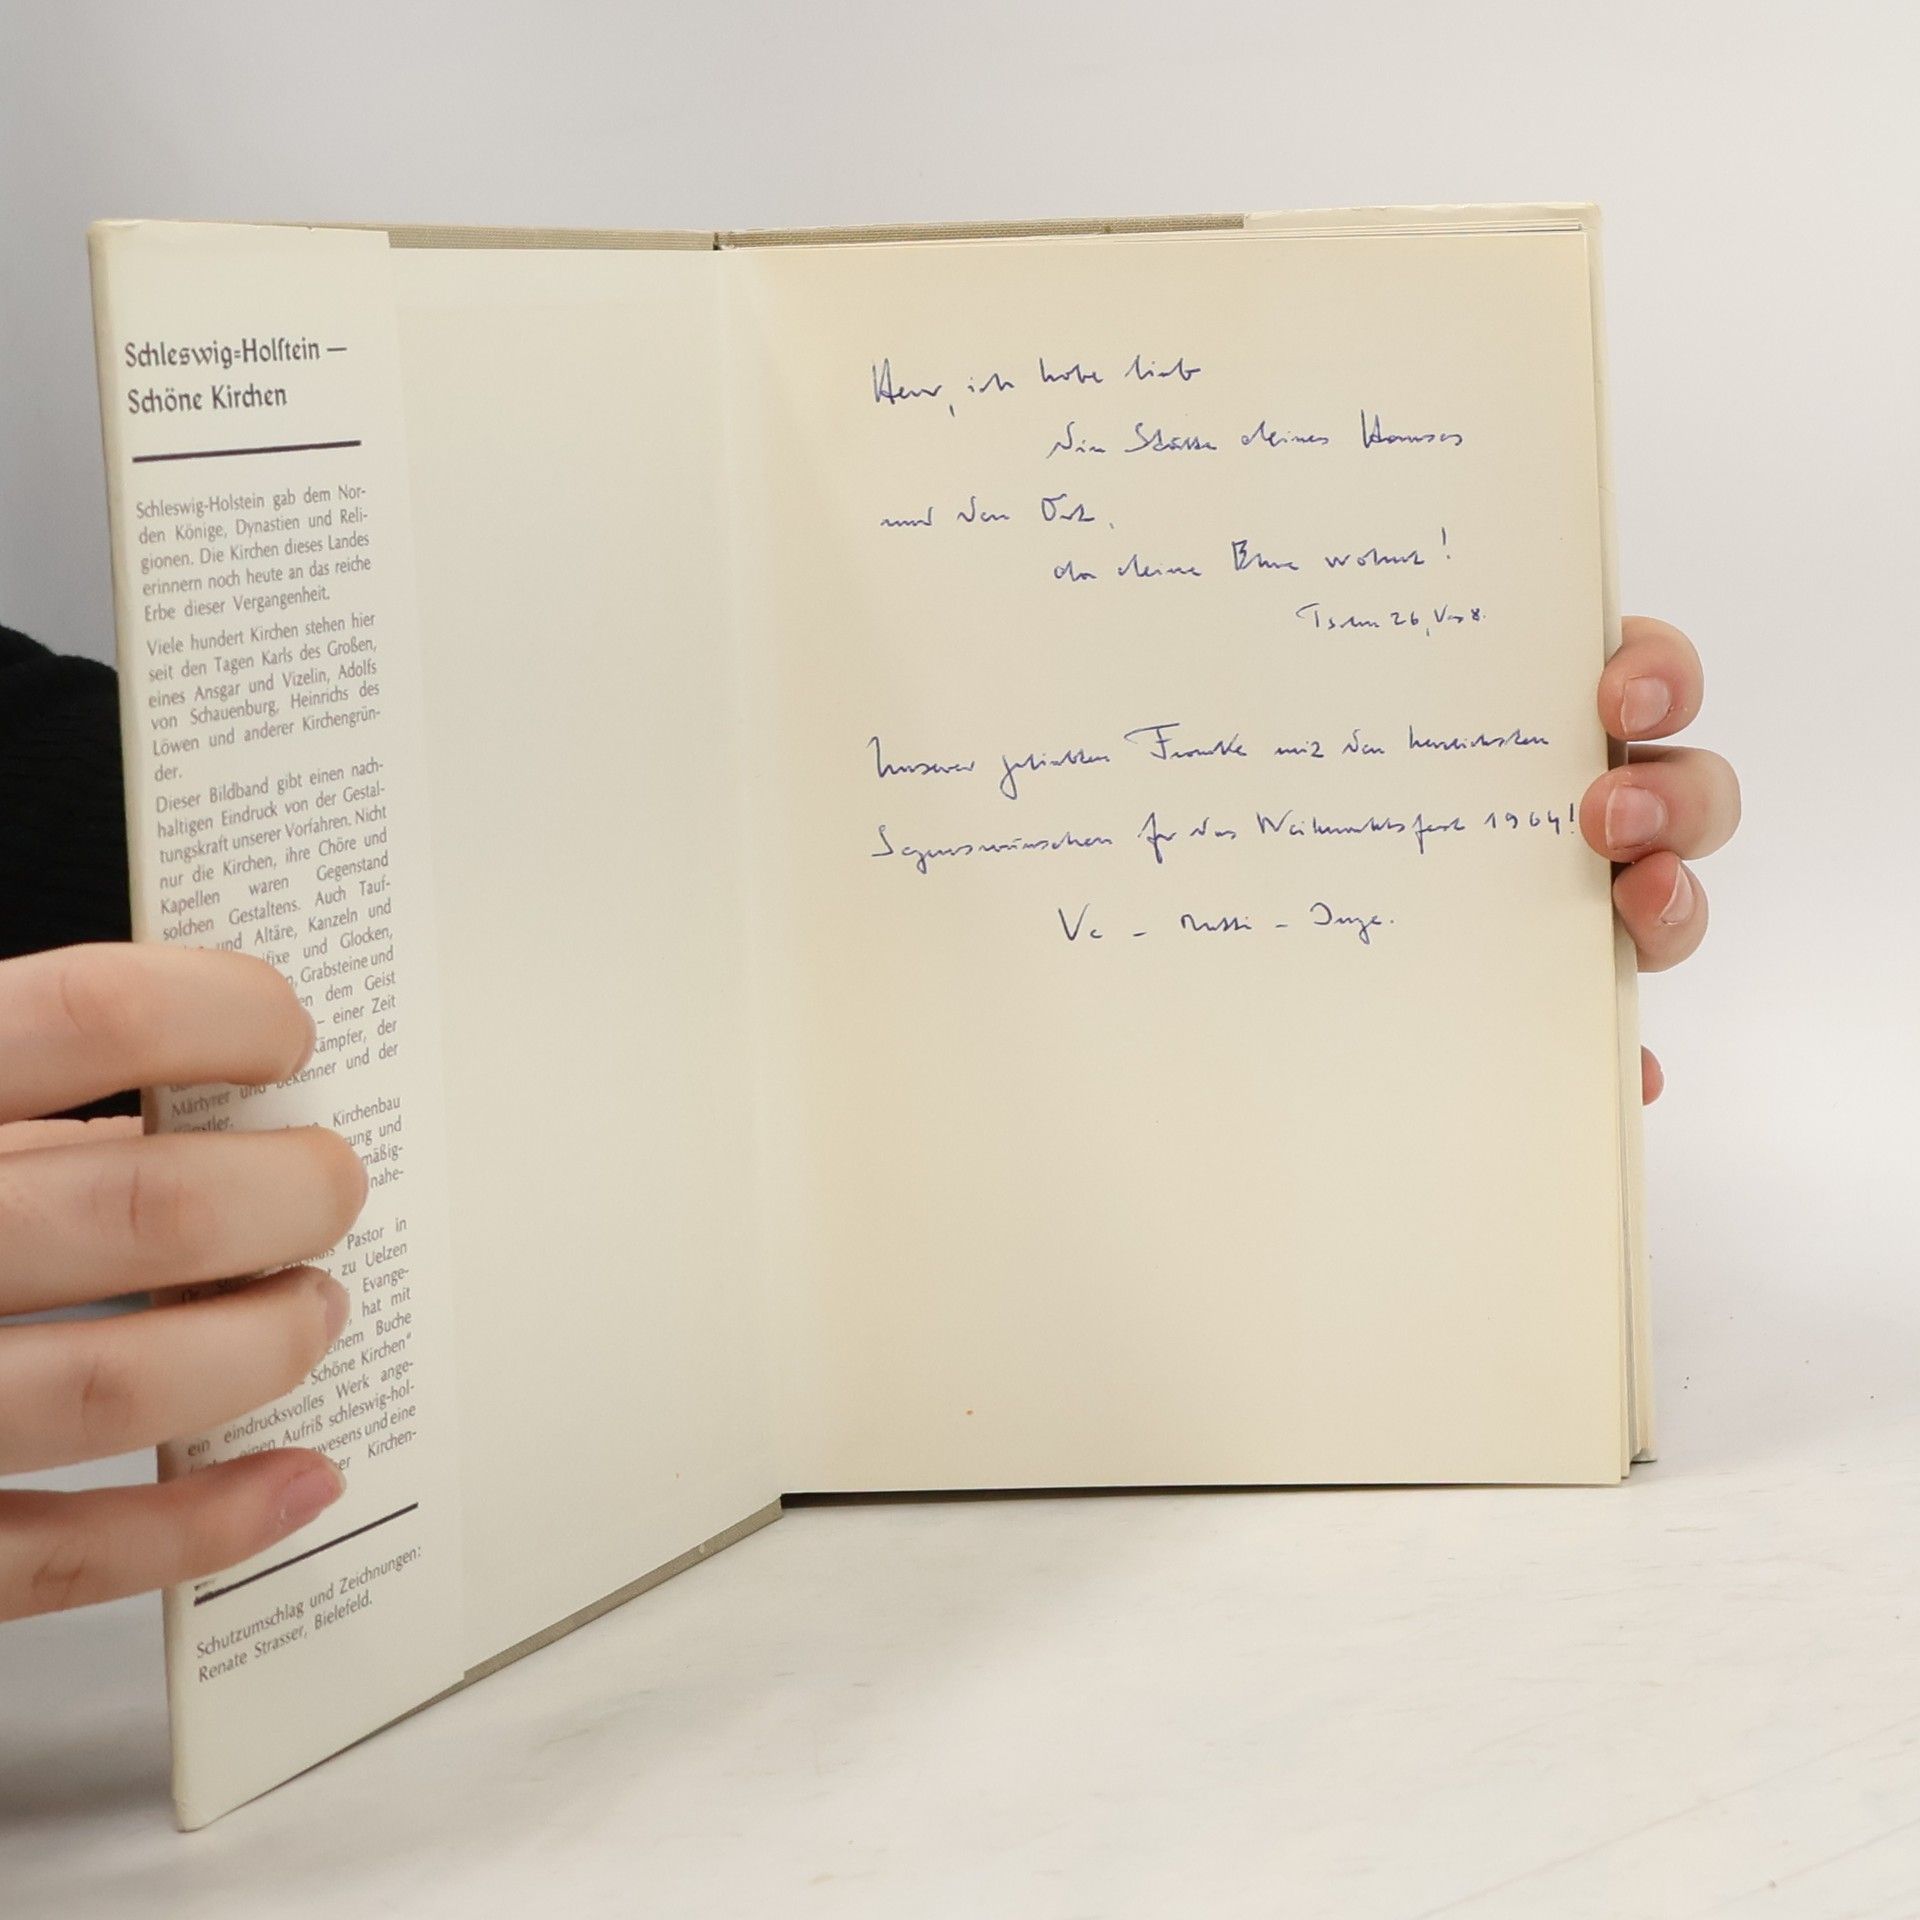 Schleswig=Holſtein —
Schöne Kirchen
Schleswig-Holstein gab dem Nor-
den Könige, Dynastien und Reli-
gionen. Die Kirchen dieses Landes
erinnern noch heute an das reiche
Erbe dieser Vergangenheit.
Viele hundert Kirchen stehen hier
seit den Tagen Karls des Großen,
eines Ansgar und Vizelin, Adolfs
von Schauenburg, Heinrichs des
Löwen und anderer Kirchengrün-
der.
Dieser Bildband gibt einen nach-
haltigen Eindruck von der Gestal-
tungskraft unserer Vorfahren. Nicht
nur die Kirchen, ihre Chöre und
Kapellen waren Gegenstand
solchen Gestaltens. Auch Tauf-
und Altäre, Kanzeln und
ifixe und Glocken,
n, Grabsteine und
en dem Geist
– einer Zeit
Kämpfer, der
Märtyrer und Bekenner und der
Künstler.
Kirchenbau
rung und
mäßig-
nahe-
Pastor in
zu Uelzen
Evange-
hat mit
einem Buche
– Schöne Kirchen“
ein eindrucksvolles Werk ange-
einen Aufriß schleswig-hol-
wesens und eine
er Kirchen-
Schutzumschlag und Zeichnungen:
Renate Strasser, Bielefeld.
Herr, ich habe lieb
die Stätte deines Hauses
und den Ort,
da deine Ehre wohnt!
26, Vers 8.
Unserer geliebten Frauke mit den herzlichsten
Segenswünschen für das Weihnachtsfest 1964!
Va – Mutti – Inge.